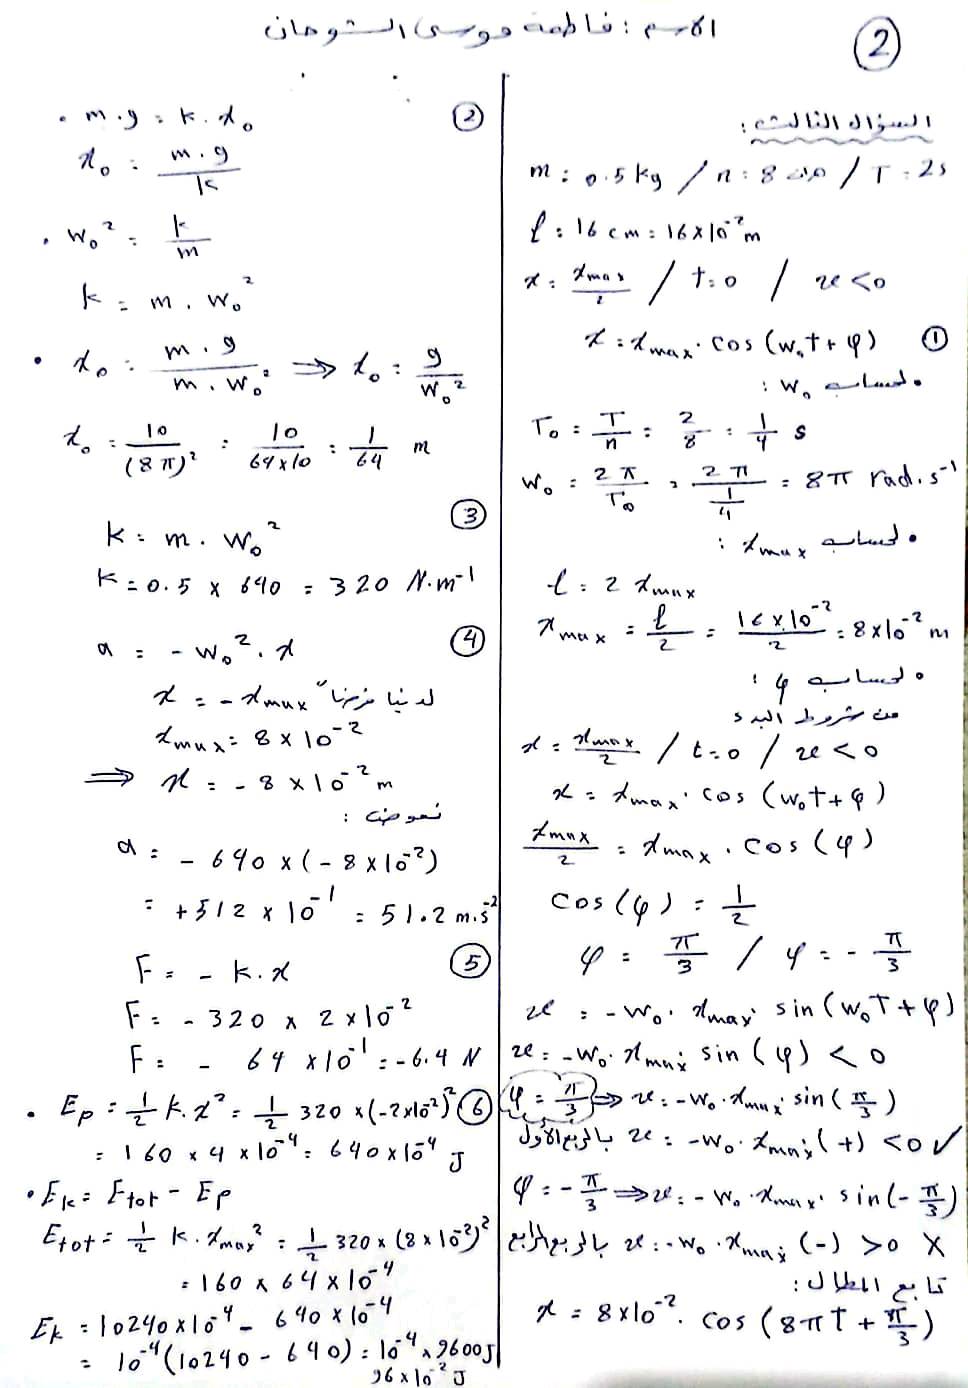 الاسم : فاطمة موسى الشوحان
②
السؤال الثالث :
m = 0.5 kg / n = 8 مرات / T = 2s
ℓ = 16 cm = 16×10⁻² m
x = xmax/2 / t=0 / v<0
① x = xmax . cos (w₀t + φ)
• لحساب w₀ :
T₀ = T/n = 2/8 = 1/4 s
w₀ = 2π/T₀ = 2π/(1/4) = 8π rad.s⁻¹
• لحساب xmax :
ℓ = 2 xmax
xmax = ℓ/2 = 16×10⁻²/2 = 8×10⁻² m
• لحساب φ :
من شروط البدء
x = xmax/2 / t=0 / v<0
x = xmax . cos (w₀t + φ)
xmax/2 = xmax . cos (φ)
cos (φ) = 1/2
φ = π/3 / φ = - π/3
v = - w₀ . xmax . sin (w₀t + φ)
v = - w₀ . xmax . sin (φ) < 0
φ = π/3 ⇒ v = - w₀ . xmax . sin (π/3)
بالربع الأول v = - w₀ . xmax . (+) < 0 ✓
φ = - π/3 ⇒ v = - w₀ . xmax . sin (- π/3)
بالربع الرابع v = - w₀ . xmax . (-) > 0 X
تابع المطال :
x = 8×10⁻² . cos (8πt + π/3)
② • m.g = k.x₀
x₀ = m.g/k
• w₀² = k/m
k = m . w₀²
• x₀ = m.g/m.w₀² ⇒ x₀ = g/w₀²
x₀ = 10/(8π)² = 10/64×10 = 1/64 m
③ k = m . w₀²
k = 0.5 × 640 = 320 N.m⁻¹
④ a = - w₀² . x
x = - xmax لدينا فرضاً
xmax = 8 × 10⁻²
⇒ x = - 8 × 10⁻² m
نعوض :
a = - 640 × (- 8×10⁻²)
= + 512 × 10⁻¹ = 51.2 m.s⁻²
⑤ F = - k.x
F = - 320 × 2×10⁻²
F = - 64 ×10⁻¹ = -6.4 N
⑥ • Ep = 1/2 k.x² = 1/2 320 ×(-2×10⁻²)²
= 160 × 4 × 10⁻⁴ = 640×10⁻⁴ J
• Ek = Etot - Ep
Etot = 1/2 k.xmax² = 1/2 320 × (8×10⁻²)²
= 160 × 64 × 10⁻⁴
Ek = 10240×10⁻⁴ - 640×10⁻⁴
= 10⁻⁴ (10240 - 640) = 10⁻⁴ × 9600 J
96×10⁻² J